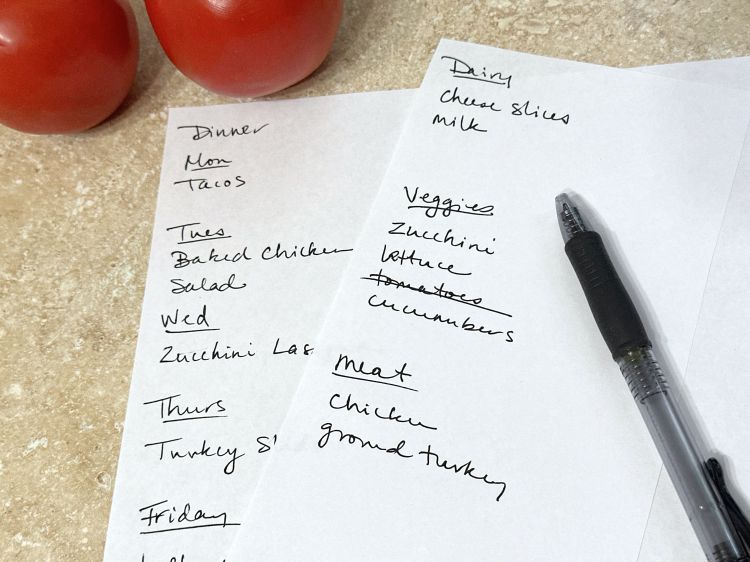 Dinner
Mon
Tacos
Tues
Baked Chicken
Salad
Wed
Zucchini Las
Thurs
Turkey S
Friday
Dairy
cheese slices
milk
Veggies
Zucchini
lettuce
tomatoes
cucumbers
meat
chicken
ground turkey